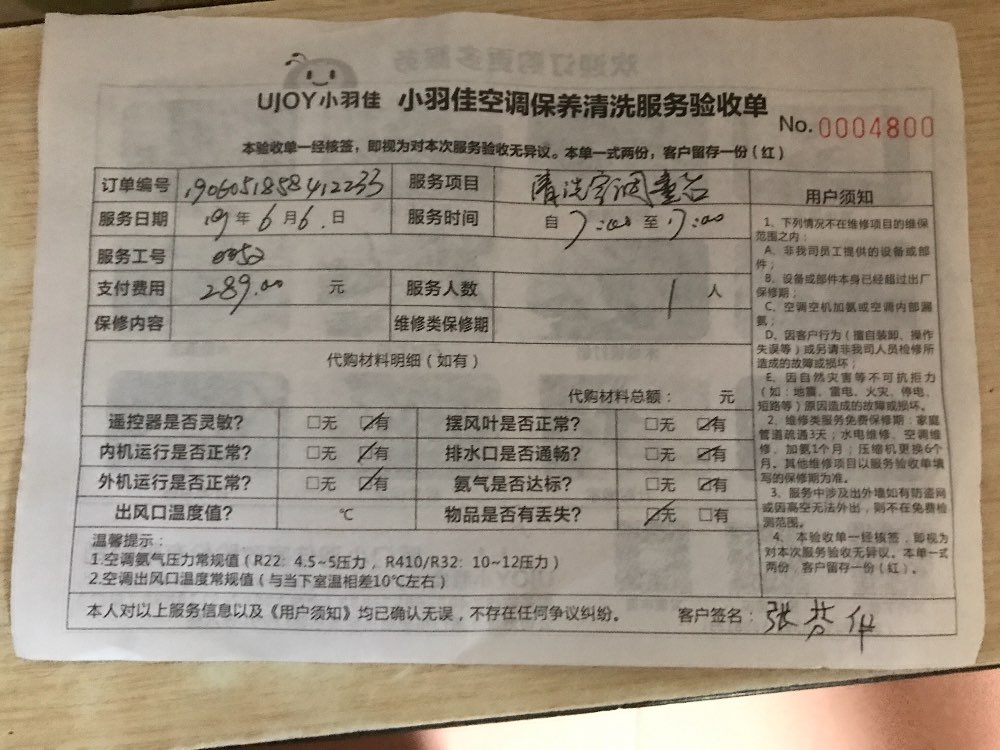 欢迎订购更多服务
UJOY小羽佳 小羽佳空调保养清洗服务验收单
No. 0004800
本验收单一经核签，即视为对本次服务验收无异议。本单一式两份，客户留存一份（红）
订单编号 1906051858412233 服务项目 清洗空调壹台
服务日期 19年6月6.日 服务时间 自7:00至17:00
服务工号 0052
支付费用 289.00 元 服务人数 1人
保修内容 维修类保修期
代购材料明细（如有）
代购材料总额： 元
遥控器是否灵敏？ □无 ☑有 摆风叶是否正常？ □无 ☑有
内机运行是否正常？ □无 ☑有 排水口是否通畅？ □无 ☑有
外机运行是否正常？ □无 ☑有 氨气是否达标？ □无 ☑有
出风口温度值？ ℃ 物品是否有丢失？ ☑无 □有
温馨提示：
1.空调氨气压力常规值（R22：4.5~5压力，R410/R32：10~12压力）
2.空调出风口温度常规值（与当下室温相差10℃左右）
本人对以上服务信息以及《用户须知》均已确认无误，不存在任何争议纠纷。 客户签名：张芬
用户须知
1、下列情况不在维修项目的维保
范围之内：
A、非我司员工提供的设备或部
件；
B、设备或部件本身已经超过出厂
保修期；
C、空调空机加氨或空调内部漏
氨；
D、因客户行为（擅自装卸、操作
失误等）或另请非我司人员检修所
造成的故障或损坏；
E、因自然灾害等不可抗拒力
（如：地震、雷电、火灾、停电、
短路等）原因造成的故障或损坏。
2、维修类服务免费保修期：家庭
管道疏通3天；水电维修、空调维
修、加氨1个月；压缩机更换6个
月。其他维修项目以服务验收单填
写的保修期为准。
3、服务中涉及出外墙如有防盗网
或因高空无法外出，则不在免费检
测范围。
4、本验收单一经核签，即视为
对本次服务验收无异议。本单一式
两份，客户留存一份（红）。